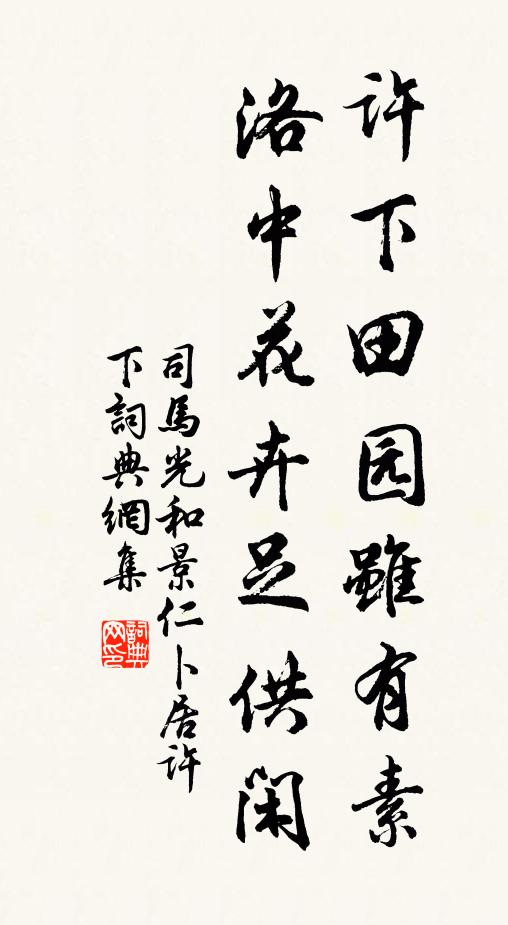 許下田园雖有素
洛中花卉足供闲
司馬光和景仁卜居許
下詞典網集
詞典网印